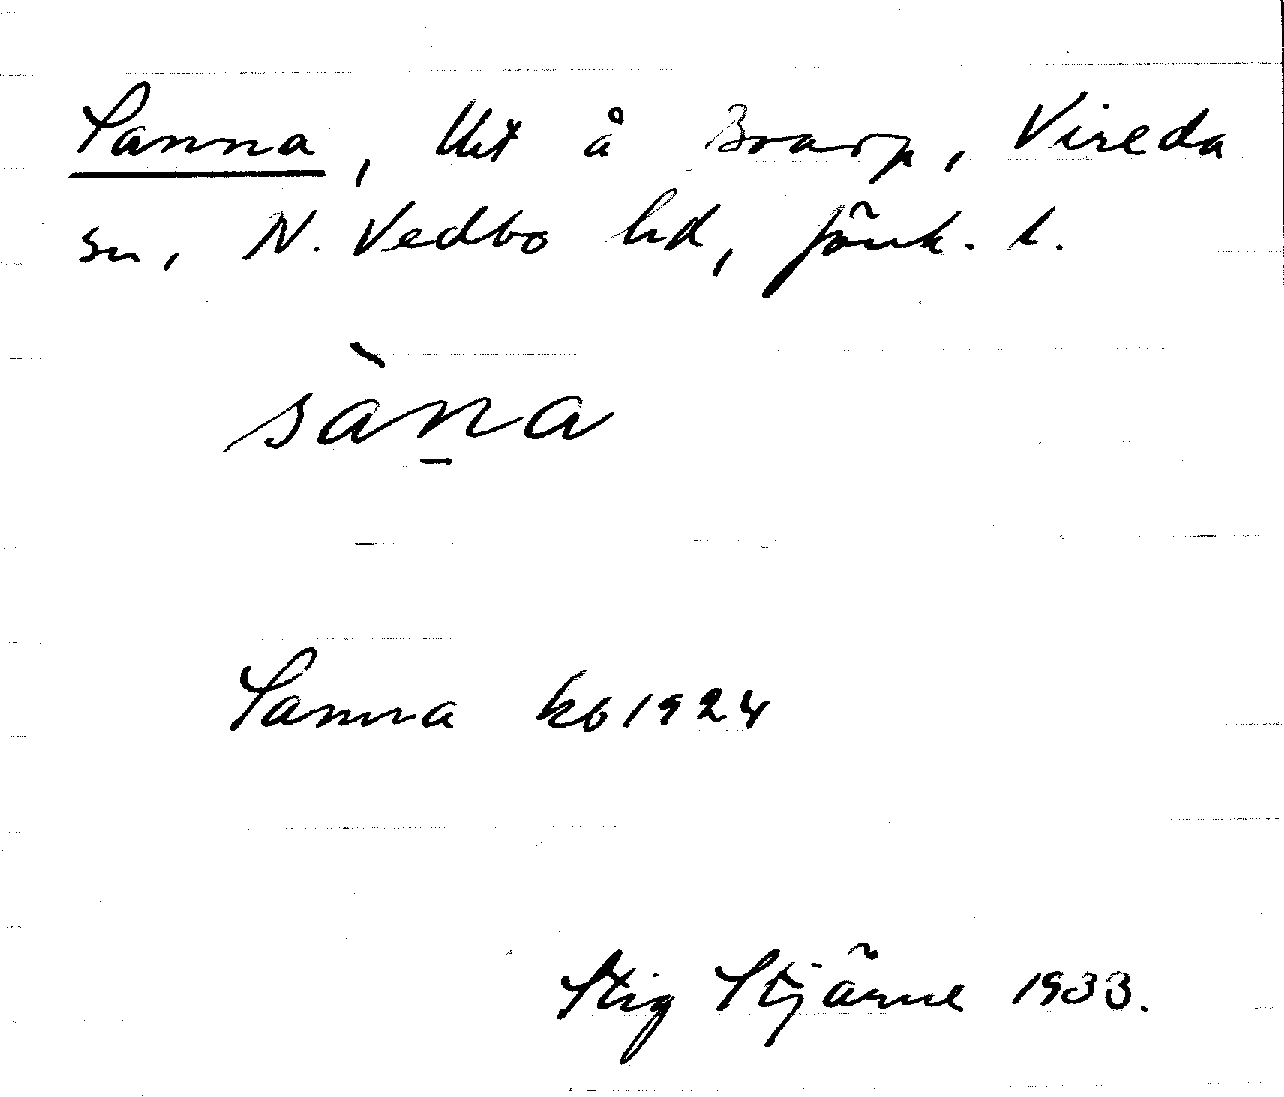 Sanna, lht å Boarp, Vireda
sn, N. Vedbo hd, Jönk. l.
sàn̠a
Sanna kb 1924
Stig Stjärne 1933.